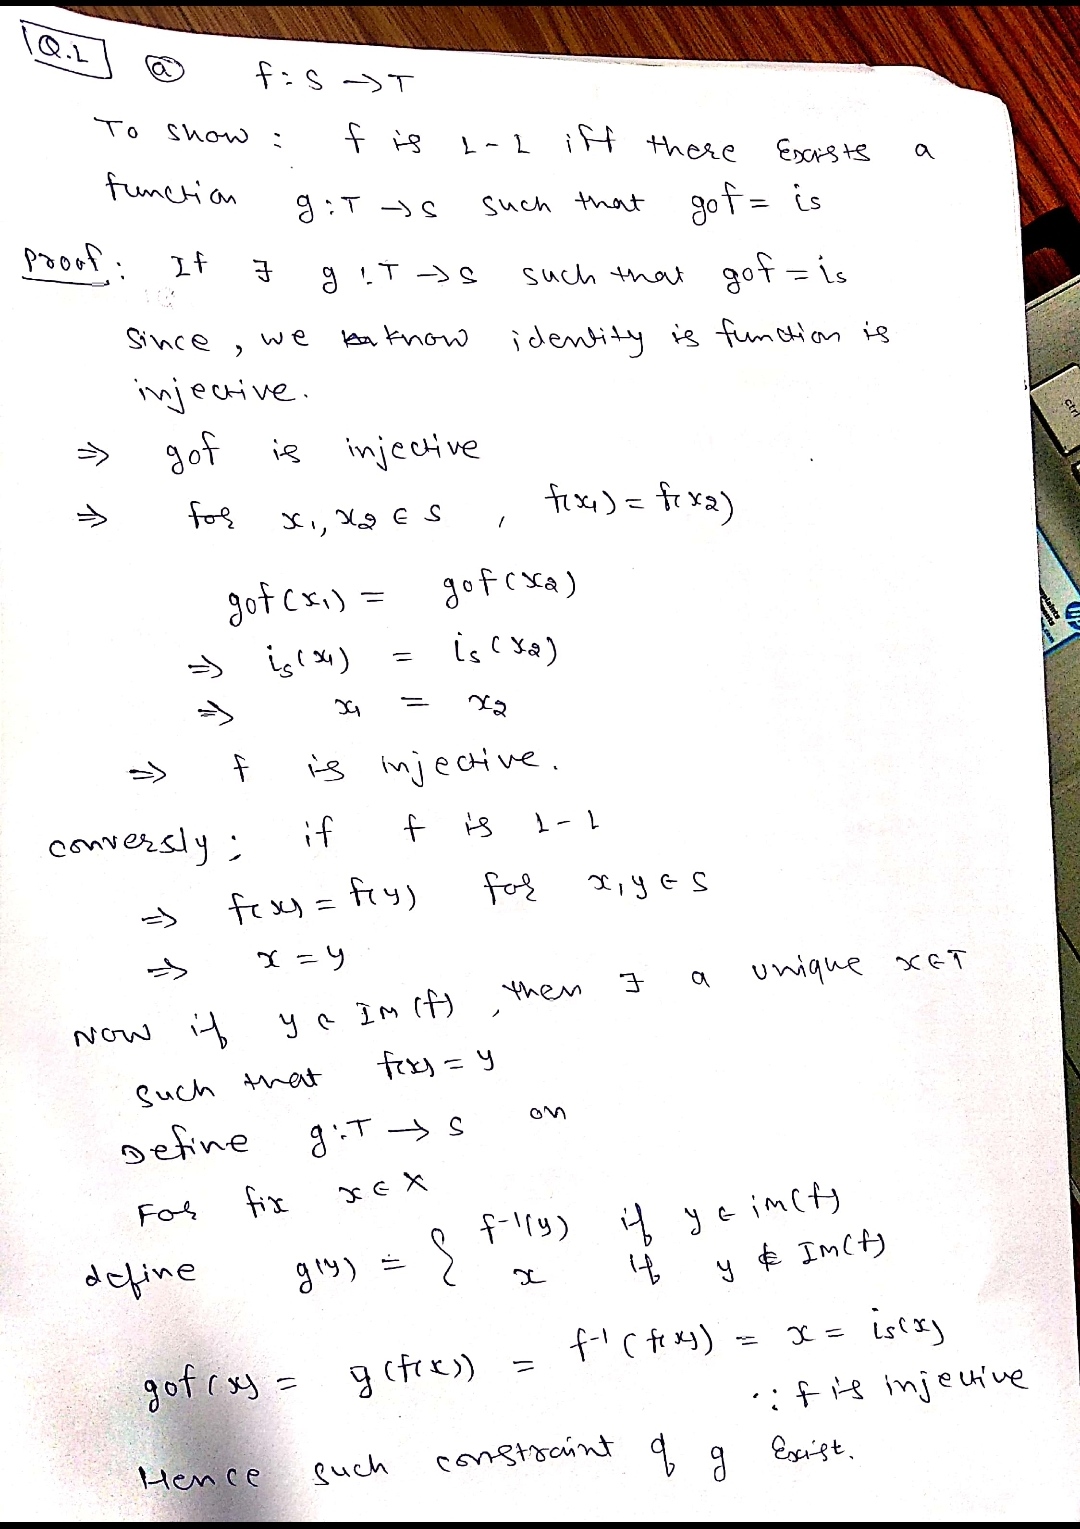 Q.1 (a) f: S → T
To show : f is 1-1 iff there Exists a
function g: T → S such that gof = is
Proof: If ∃ g: T → S such that gof = is
Since, we know identity is function is
injective.
⇒ gof is injective
⇒ for x1, x2 ∈ S , f(x1) = f(x2)
gof(x1) = gof(x2)
⇒ is(x1) = is(x2)
⇒ x1 = x2
⇒ f is injective.
conversly ; if f is 1-1
⇒ f(x) = f(y) for x, y ∈ S
⇒ x = y
Now if y ∈ Im(f) , then ∃ a unique x ∈ T
such that f(x) = y
Define g: T → S on
For fix x ∈ X
define g(y) = { f-1(y) if y ∈ im(f)
x if y ∉ Im(f)
gof(x) = g(f(x)) = f-1(f(x)) = x = is(x)
∵ f is injective
Hence such constraint of g Exist.
ctrl